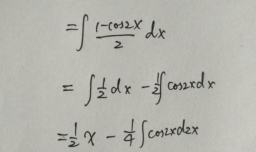 =∫ (1-cos2x)/2 dx
= ∫ 1/2 dx - 1/2 ∫ cos2xdx
= 1/2 x - 1/4 ∫ cos2xd2x